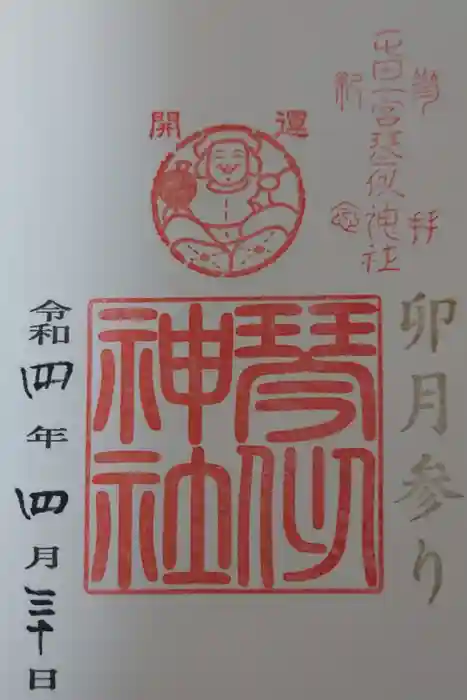 参拝
屯田一宮琴似神社
紀念
開運
卯月参り
琴似
神社
令和四年四月三十日